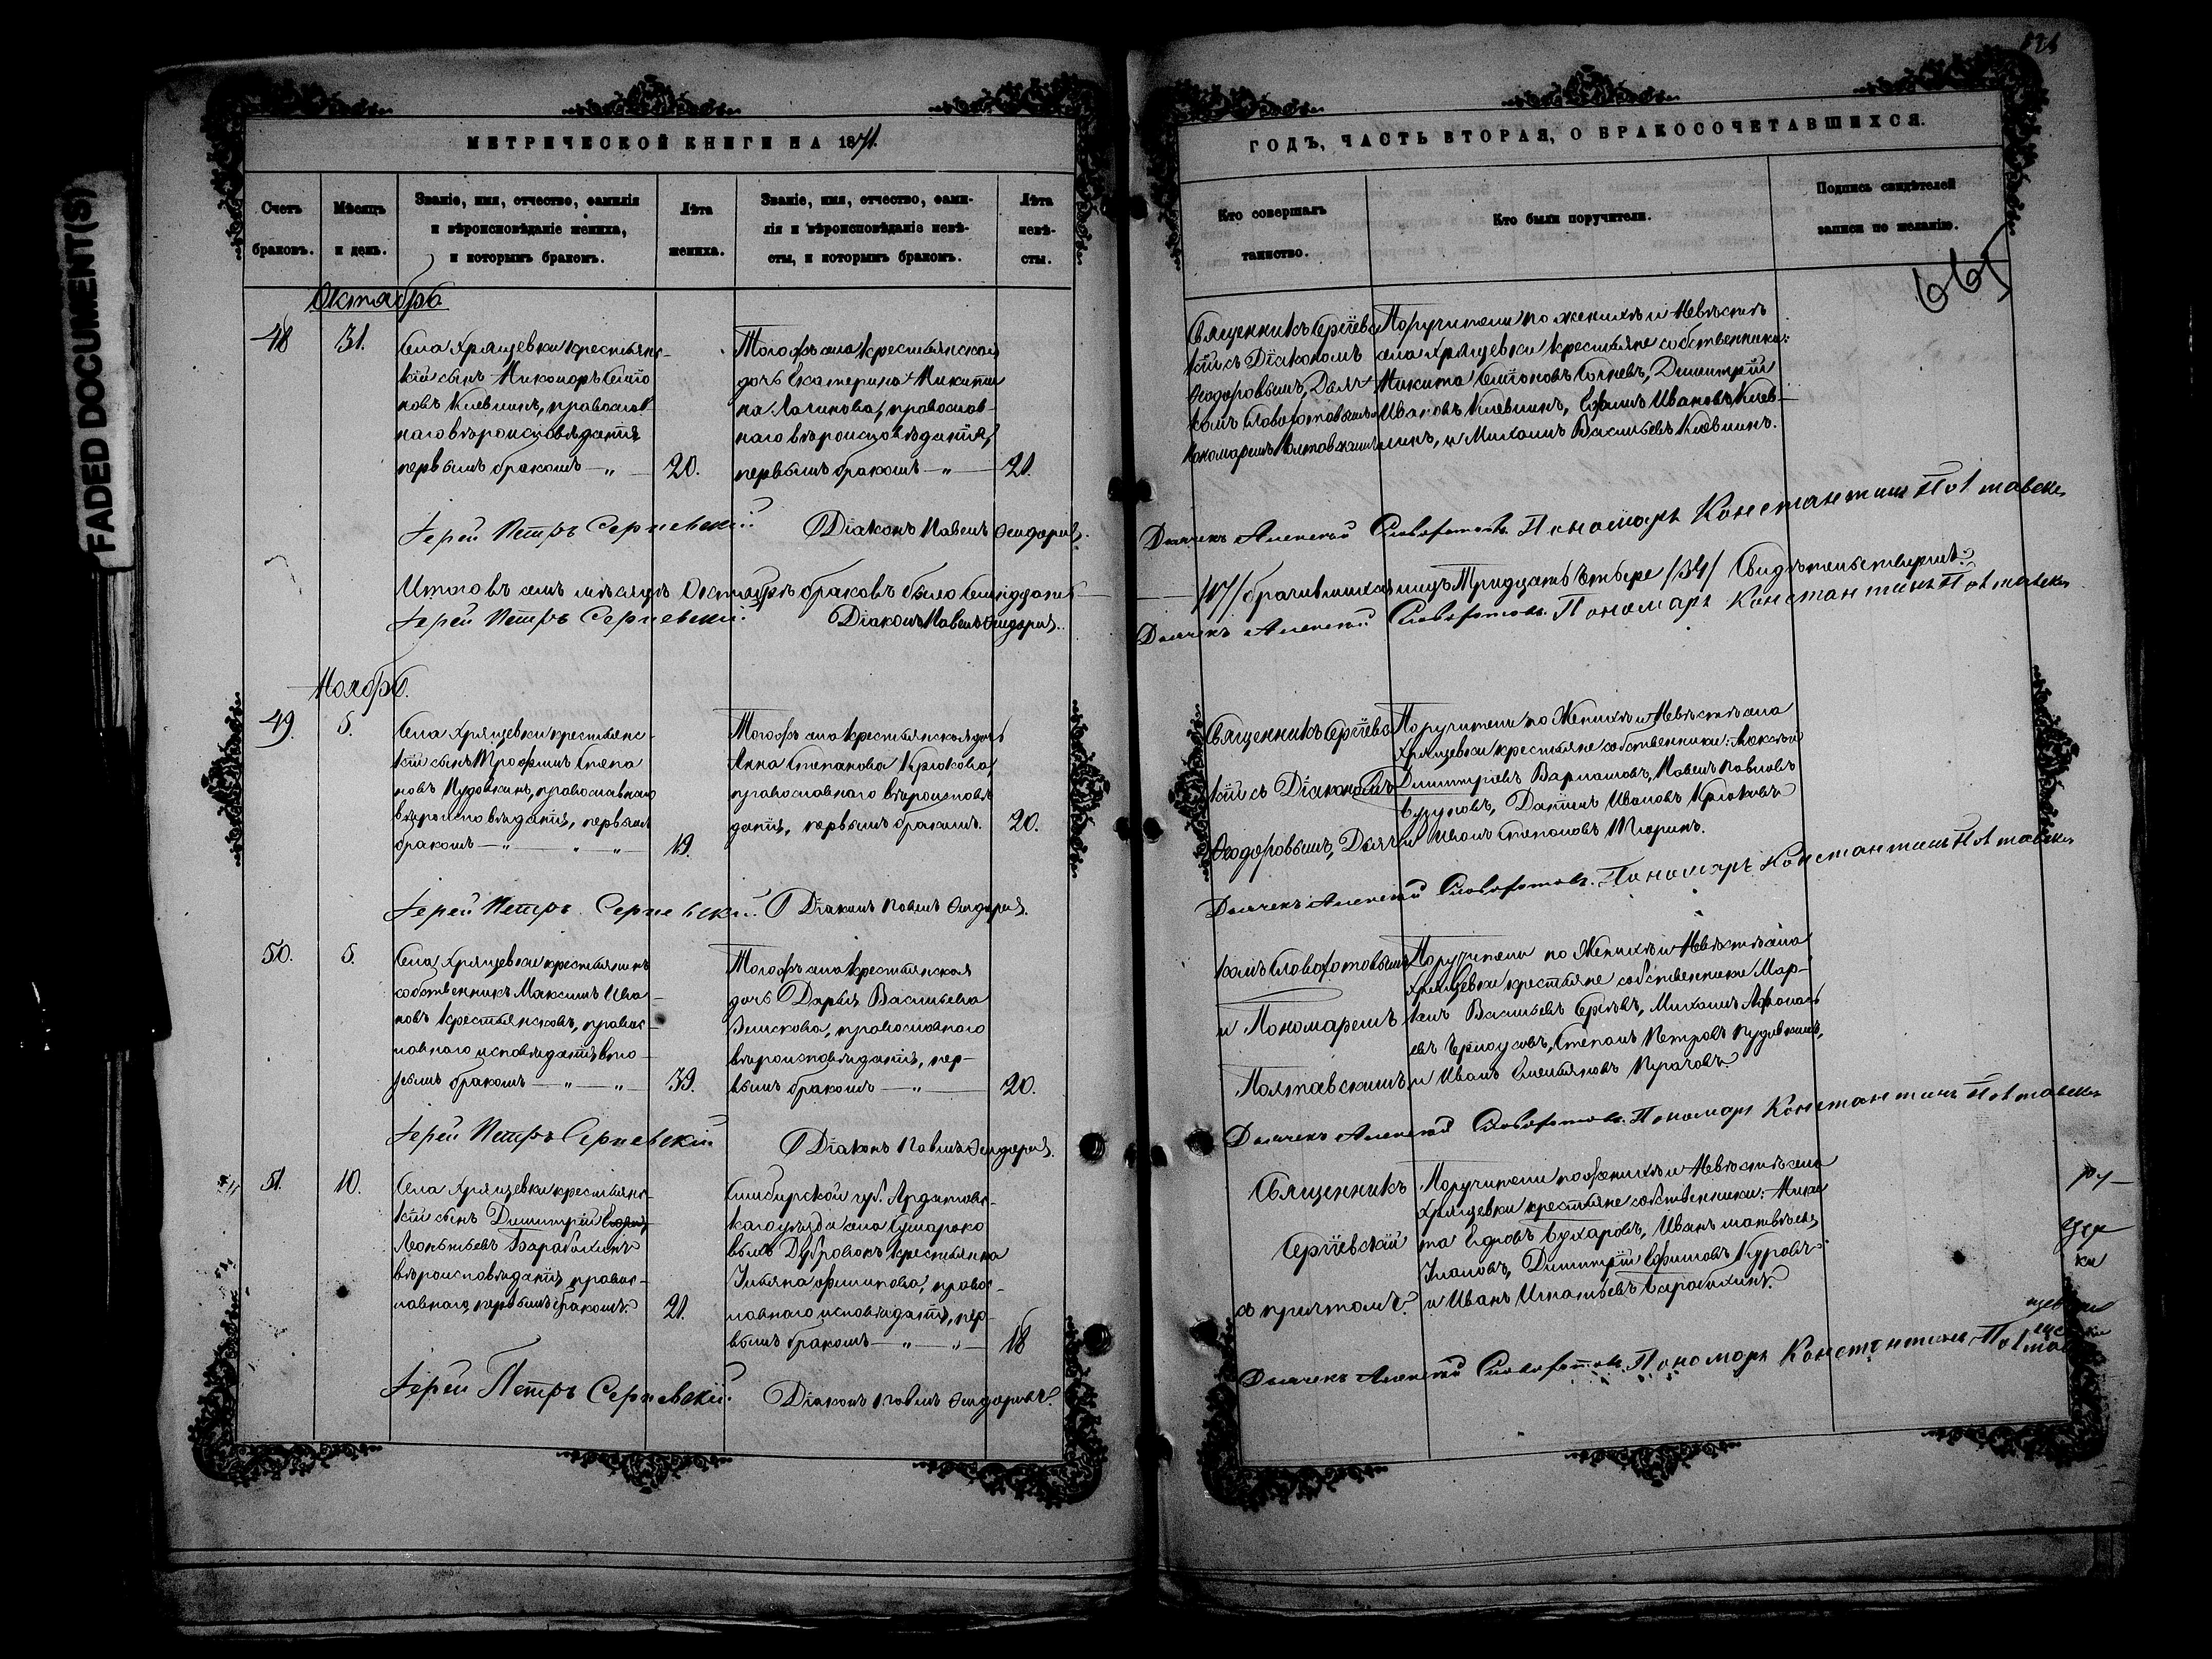 FADED DOCUMENT(S)
МЕТРИЧЕСКОЙ КНИГИ НА 1871.
Счетъ браковъ.
Мѣсяцъ и день.
Званіе, имя, отчество, фамилія
и вѣроисповѣданіе жениха,
и которымъ бракомъ.
Лѣта жениха.
Званіе, имя, отчество, фами-
лія и вѣроисповѣданіе невѣ-
сты, и которымъ бракомъ.
Лѣта невѣ-
сты.
Октябрь
48
31.
Села Хрящевки крестьянс-
кій сынъ Никаноръ Симіо
новъ Клевлинъ, православ-
наго вѣроисповѣданія
первымъ бракомъ — „ —
20.
Тогожъ села крестьянская
дочь Екатерина Никити
на Лачинова, православ-
наго вѣроисповѣданія,
первымъ бракомъ — „ —
21.
Іерей Петръ Сергіевскій.
Діаконъ Павелъ Ѳеодоровъ.
Итого въ семъ мѣсяцѣ Октябрѣ браковъ было семнадцать
Іерей Петръ Сергіевскій.
Діаконъ Павелъ Ѳеодоровъ.
Ноябрь.
49.
5.
Села Хрящевки крестьянс-
кій сынъ Трофимъ Степа
новъ Пудовкинъ, православнаго
вѣроисповѣданія, первымъ
бракомъ — „ — „ — „ —
19.
Тогожъ села крестьянская дочь
Анна Степанова Крюкова,
православнаго вѣроисповѣ
данія, первымъ бракомъ.
20.
Іерей Петръ Сергіевскій.
Діаконъ Павелъ Ѳеодоровъ.
50.
5.
Села Хрящевки крестьянинъ
собственникъ Максимъ Ива-
новъ Крестьянсковъ, правос-
лавнаго исповѣданія вто-
рымъ бракомъ — „ — „
39.
Тогожъ села крестьянская
дочь Дарья Васильева
Земскова, православнаго
вѣроисповѣданія, пер-
вымъ бракомъ — „ —
20.
Іерей Петръ Сергіевскій
Діаконъ Павелъ Ѳеодоровъ.
51.
10.
Села Хрящевки крестьянс-
кій сынъ Димитрій
Леонтьевъ Барабошкинъ
вѣроисповѣданія правос-
лавнаго, первымъ бракомъ.
21.
Симбирской губ. Ардатовс-
каго уѣзда села Кумароко
выхъ Дубровокъ крестьянка
Ульяна Филипова, правос-
лавнаго исповѣданія, пер-
вымъ бракомъ — „ — „ —
18
Іерей Петръ Сергіевскій.
Діаконъ Павелъ Ѳеодоровъ.
ГОДЪ, ЧАСТЬ ВТОРАЯ, О БРАКОСОЧЕТАВШИХСЯ.
Кто совершалъ
таинство.
Кто были поручители.
Подпись свидѣтелей
записи по желанію.
665
Священникъ Сергіевс
кій съ Діакономъ
Ѳеодоровымъ, Дьяч
комъ Словохотовымъ и
Пономаремъ Полтавскимъ
Поручители по женихѣ и Невѣстѣ
села Хрящевки крестьяне собственники:
Никита Симіоновъ Димитрій
Ивановъ Клевлинъ, Ефимъ Ивановъ Клев-
линъ, и Михаилъ Васильевъ Клевлинъ.
Дьячекъ Алексѣй Словохотовъ. Пономарь Константинъ Полтавскій
/17/ брачившихся лицъ Тридцать четыре /34/ Свидѣтельствуемъ:
Дьячекъ Алексѣй Словохотовъ. Пономарь Константинъ Полтавскій
Священникъ Сергіевс
кій съ Діакономъ
Ѳеодоровымъ, Дьяч
Поручители по Женихѣ и Невѣстѣ села
Хрящевки крестьяне собственники: Алексѣй
Димитріевъ Варламовъ, Павелъ Павловъ
Буруновъ, Даніилъ Ивановъ Крюковъ
и Иванъ Степановъ Тюринъ.
Дьячекъ Алексѣй Словохотовъ. Пономарь Константинъ Полтавскій
комъ Словохотовымъ
и Пономаремъ
Полтавскимъ
Поручители по Женихѣ и Невѣстѣ села
Хрящевки крестьяне собственники Мар-
келъ Васильевъ Михаилъ Афонась
евъ Степанъ Петровъ Пудовкинъ,
и Иванъ Емельяновъ Пугачовъ.
Дьячекъ Алексѣй Словохотовъ. Пономарь Константинъ Полтавскій
Священникъ
Сергіевскій
съ причтомъ.
Поручители по женихѣ и Невѣстѣ села
Хрящевки крестьяне собственники: Ники
та Бухаровъ, Иванъ Матвѣевъ
Димитрій Ефимовъ Куровъ
и Иванъ Игнатьевъ Барабошкинъ.
Дьячекъ Алексѣй Словохотовъ. Пономарь Константинъ
ру-
ки